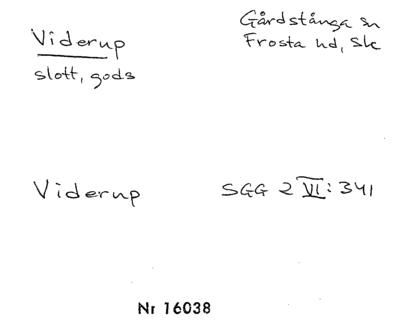 Viderup
slott, gods
Gårdstånga sn
Frosta hd, Sk
Viderup
SGG 2 VI: 341
Nr 16038